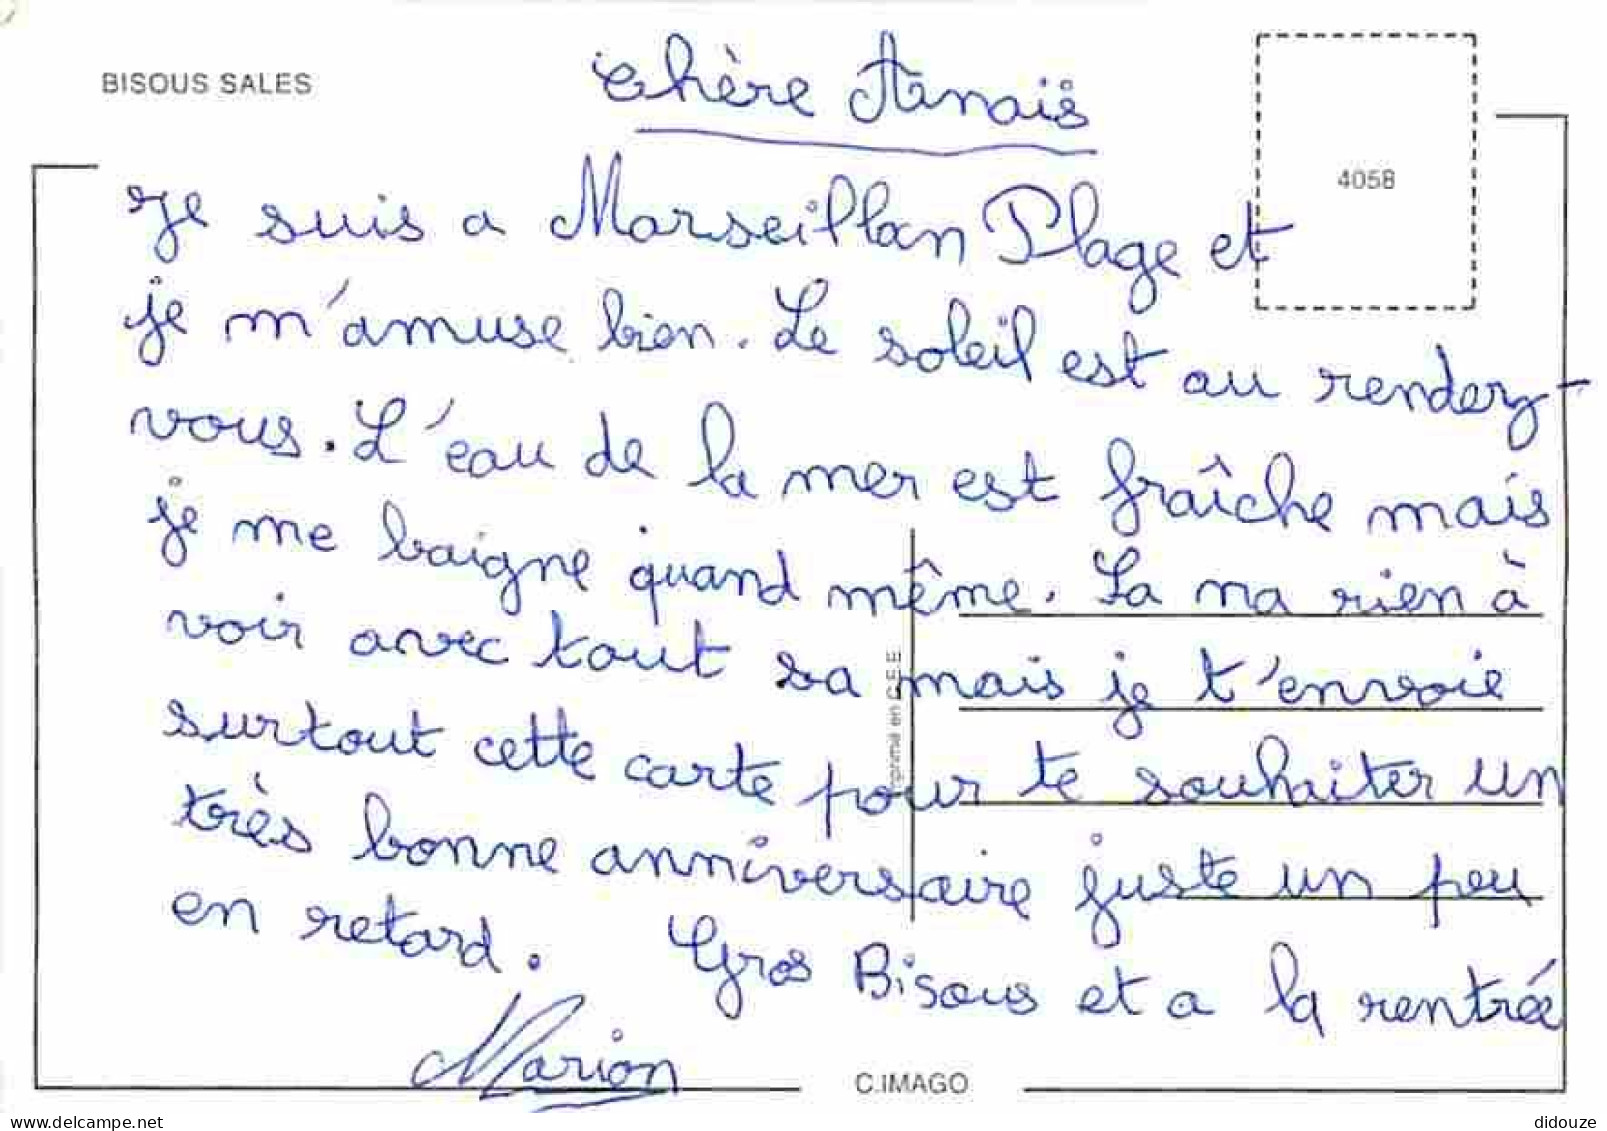 BISOUS SALES
Chère Anaïs
4058
Je suis a Marseillan Plage et
je m'amuse bien. Le soleil est au rendez-
vous. L'eau de la mer est fraîche mais
je me baigne quand même. Sa na rien à
voir avec tout sa mais je t'envoie
surtout cette carte pour te souhaiter un
très bonne anniversaire juste un peu
en retard. Gros Bisous et a la rentrée
Marion
Imprimé en C.E.E
C.IMAGO
delcampe.net
didouze